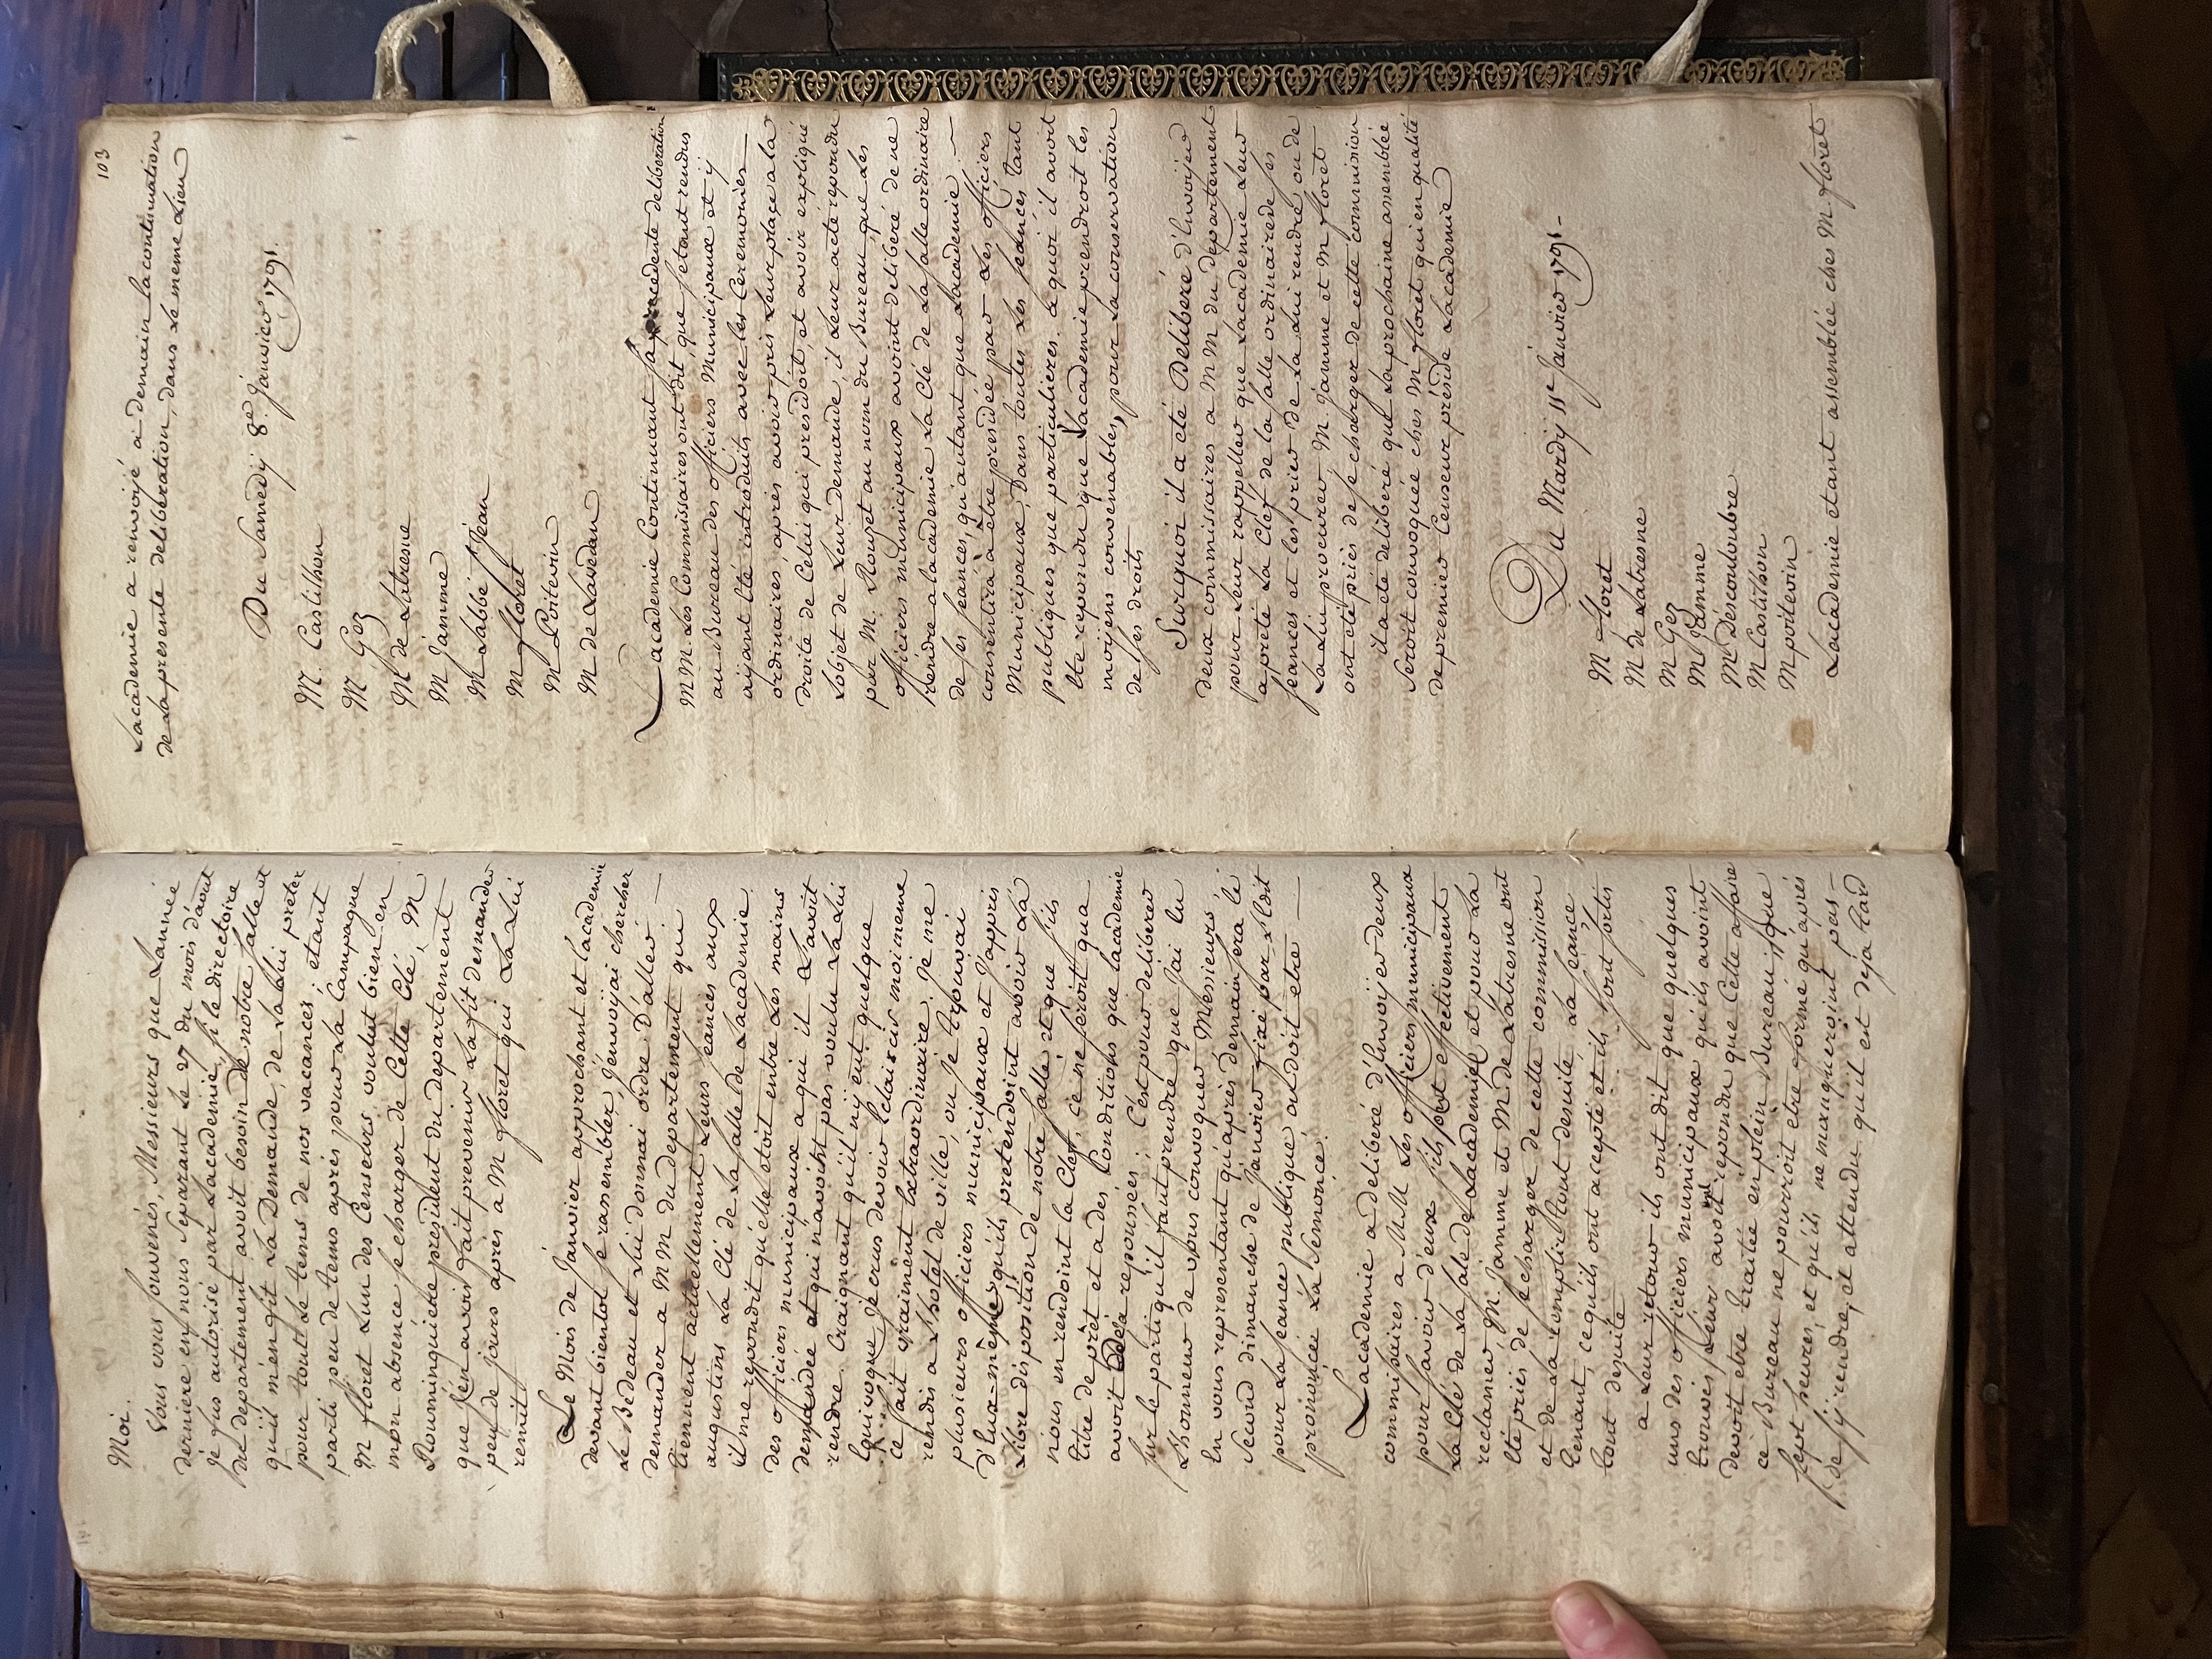 Moi.
Vous vous souvenés, Messieurs que Lanné
derniere en nous separant le 27 du mois d'aout
je fus autorisé par Lacademie, si le directoire
du departement avoit besoin de notre salle et
qu'il m'en fit La Demande, de La lui preter
pour tout le tems de nos vacances; etant
parti peu de tems après pour La Campagne
M floret Lun des Censeurs voulut bien en
mon absence se charger de Cette Clé, M
Rouminguiere president du departement
que j'en avois fait prevenir La fit demander
peu de jours après a M floret qui La Lui
remit
Le Mois de Janvier approchant et Lacademie
devant bientot se rassembler, j'envoijai chercher
le Bedeau et Lui donnai ordre D'aller
demander a MM du departement qui
tiennent actuellement Leurs seances aux
augustins La Clé de La salle de Lacademie.
il me repondit qu'elle etoit entre Les mains
des officiers municipaux a qui il L'avoit
demandée et qui n'avoint pas voulu La Lui
rendre. Craignant qu'il n'y eut quelque
Equivoque je crus devoir Eclaircir moi meme
ce fait vraiment Extraordinaire. Je me
rendis a L'hotel de ville, ou je trouvai
plusieurs officiers municipaux et j'appris
d'Eux-mêmes qu'ils pretendoint avoir La
Libre disposition de notre salle et que s'ils
nous en rendoint la Clef, ce ne seroit qu'a
titre de prêt et a des Conditions que Lacademie
avoit deja repoussées; C'est pour deliberer
sur le parti qu'il faut prendre que j'ai Eu
L'honneur de vous convoquer Messieurs,
En vous representant qu'après demain sera le
second dimanche de Janvier fixé par L'Edit
pour La seance publique, ou doit etre
prononcée La Semonce.
Lacademie a deliberé d'Envoijer deux
commissaires a MM Les officiers municipaux
pour savoir d'eux s'ils ont effectivement
La Clé de La sale de Lacademie et pour La
reclamer, M. Jamme et M de Latresne ont
eté priés de se charger de cette commission
et de La remplir tout desuite La seance
tenant, ce qu'ils ont accepté et ils sont sortis
tout desuite
a Leur retour ils ont dit que quelques
uns des officiers municipaux qu'ils avoint
trouvés Leur avoint repondu que Cette affaire
devoit etre traitée en plein Bureau; que
ce Bureau ne pourroit etre formé qu'après
sept heures, et qu'ils ne manqueroint pas
de s'ij rendre, et attendu qu'il est deja tard
103
Lacademie a renvoijé a demain La continuation
de La presente deliberation, dans Le meme Lieu
Du Samedij 8e. Janvier 1791.
M. Castilhon
M. Gez
M de Latresne
M Jamme
M Labbé St Jean
M floret
M Poitevin
M de Lavedan
Lacademie Continuant sa precedente deliberation
MM. Les Commissaires ont dit, que s'etant rendus
au Bureau des officiers Municipaux et ij
aijant eté introduits avec les Ceremonies
ordinaires, après avoir pris Leur place a la
droite de Celui qui presidoit, et avoir expliqué
Lobjet de Leur demande, il Leur a eté repondu
par M. Rouget au nom du Bureau, que Les
officiers municipaux avoint deliberé de ne
rendre a Lacademie La Clé de La salle ordinaire
de ses seances, qu'autant que Lacademie
consentira a être presidée par Les officiers
Municipaux, Dans toutes Les seances tant
publiques que particulieres. a quoi il avoit
eté repondu que Lacademie prendroit les
moijens convenables, pour La conservation
de ses droits
Surquoi il a eté Deliberé d'Envoijer
deux commissaires a MM du departement
pour Leur rappeller que Lacademie Leur
a preté La Clef de la salle ordinaire de ses
seances et les prier de La Lui rendre ou de
La Lui procurer M. Jamme et M floret
ont eté priés de se charger de cette commission
il a eté deliberé que La prochaine assemblée
seroit convoquée ches M floret qui en qualité
de premier Censeur préside Lacademie
Du Mardij 11e Janvier 1791.
M floret
M de Latresne
M Gez
M Jamme
M Descouloubre
M Castilhon
M poitevin
Lacademie etant assemblée ches M floret